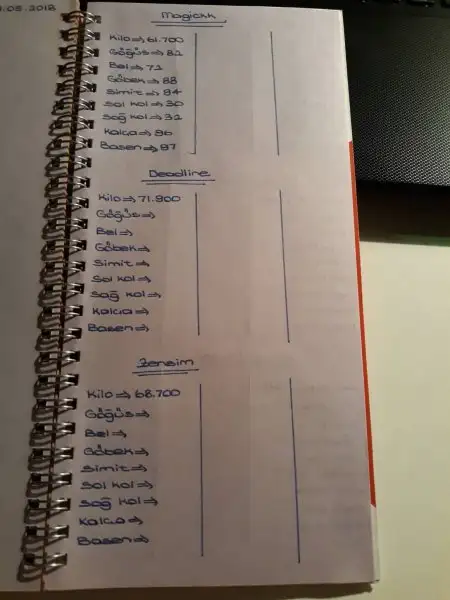 1.03.2018
Magickk
Kilo ⇒ 61.700
Göğüs ⇒ 82
Bel ⇒ 72
Göbek ⇒ 88
Simit ⇒ 94
Sol kol ⇒ 30
Sağ kol ⇒ 32
Kalça ⇒ 96
Basen ⇒ 97
Deadline
Kilo ⇒ 71.900
Göğüs ⇒
Bel ⇒
Göbek ⇒
Simit ⇒
Sol kol ⇒
Sağ kol ⇒
Kalça ⇒
Basen ⇒
Zensim
Kilo ⇒ 68.700
Göğüs ⇒
Bel ⇒
Göbek ⇒
Simit ⇒
Sol kol ⇒
Sağ kol ⇒
Kalça ⇒
Basen ⇒